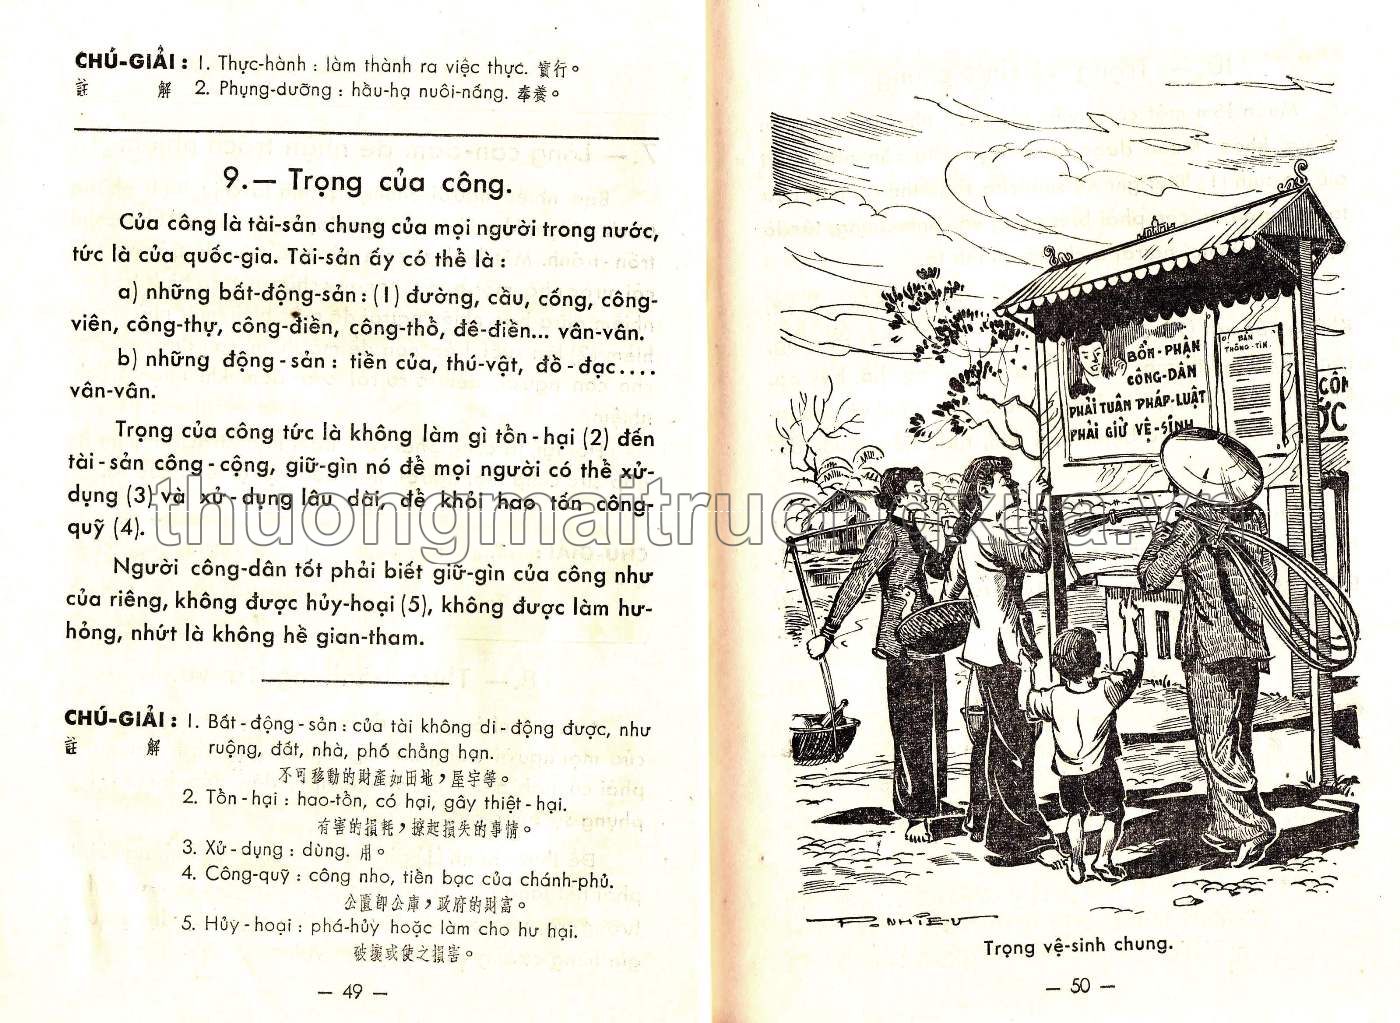 CHÚ-GIẢI : 1. Thực-hành : làm thành ra việc thực. 實行。
註 解 2. Phụng-dưỡng : hầu-hạ nuôi-nấng. 奉養。
9.— Trọng của công.
Của công là tài-sản chung của mọi người trong nước,
tức là của quốc-gia. Tài-sản ấy có thể là :
a) những bất-động-sản : (1) đường, cầu, cống, công-
viên, công-thự, công-điền, công-thổ, đê-điền... vân-vân.
b) những động-sản : tiền của, thú-vật, đồ-đạc....
vân-vân.
Trọng của công tức là không làm gì tổn-hại (2) đến
tài-sản công-cộng, giữ-gìn nó để mọi người có thể xử-
dụng (3) và xử-dụng lâu dài, để khỏi hao tốn công-
quỹ (4).
Người công-dân tốt phải biết giữ-gìn của công như
của riêng, không được hủy-hoại (5), không được làm hư-
hỏng, nhứt là không hề gian-tham.
CHÚ-GIẢI : 1. Bất-động-sản : của tài không di-động được, như
註 解 ruộng, đất, nhà, phố chẳng hạn.
不可移動的財產如田地，屋宇等。
2. Tổn-hại : hao-tổn, có hại, gây thiệt-hại.
有害的損耗，撩起損失的事情。
3. Xử-dụng : dùng. 用。
4. Công-quỹ : công nho, tiền bạc của chánh-phủ.
公匱即公庫，政府的財富。
5. Hủy-hoại : phá-hủy hoặc làm cho hư hại.
破壞或使之損害。
— 49 —
BỔN-PHẬN
CÔNG-DÂN
PHẢI TUÂN PHÁP-LUẬT
PHẢI GIỮ VỆ-SINH
BẢN
THÔNG-TIN
CÔN
ỚC
P. NHIÊU
Trọng vệ-sinh chung.
— 50 —
thuongmaitruongxua.vn